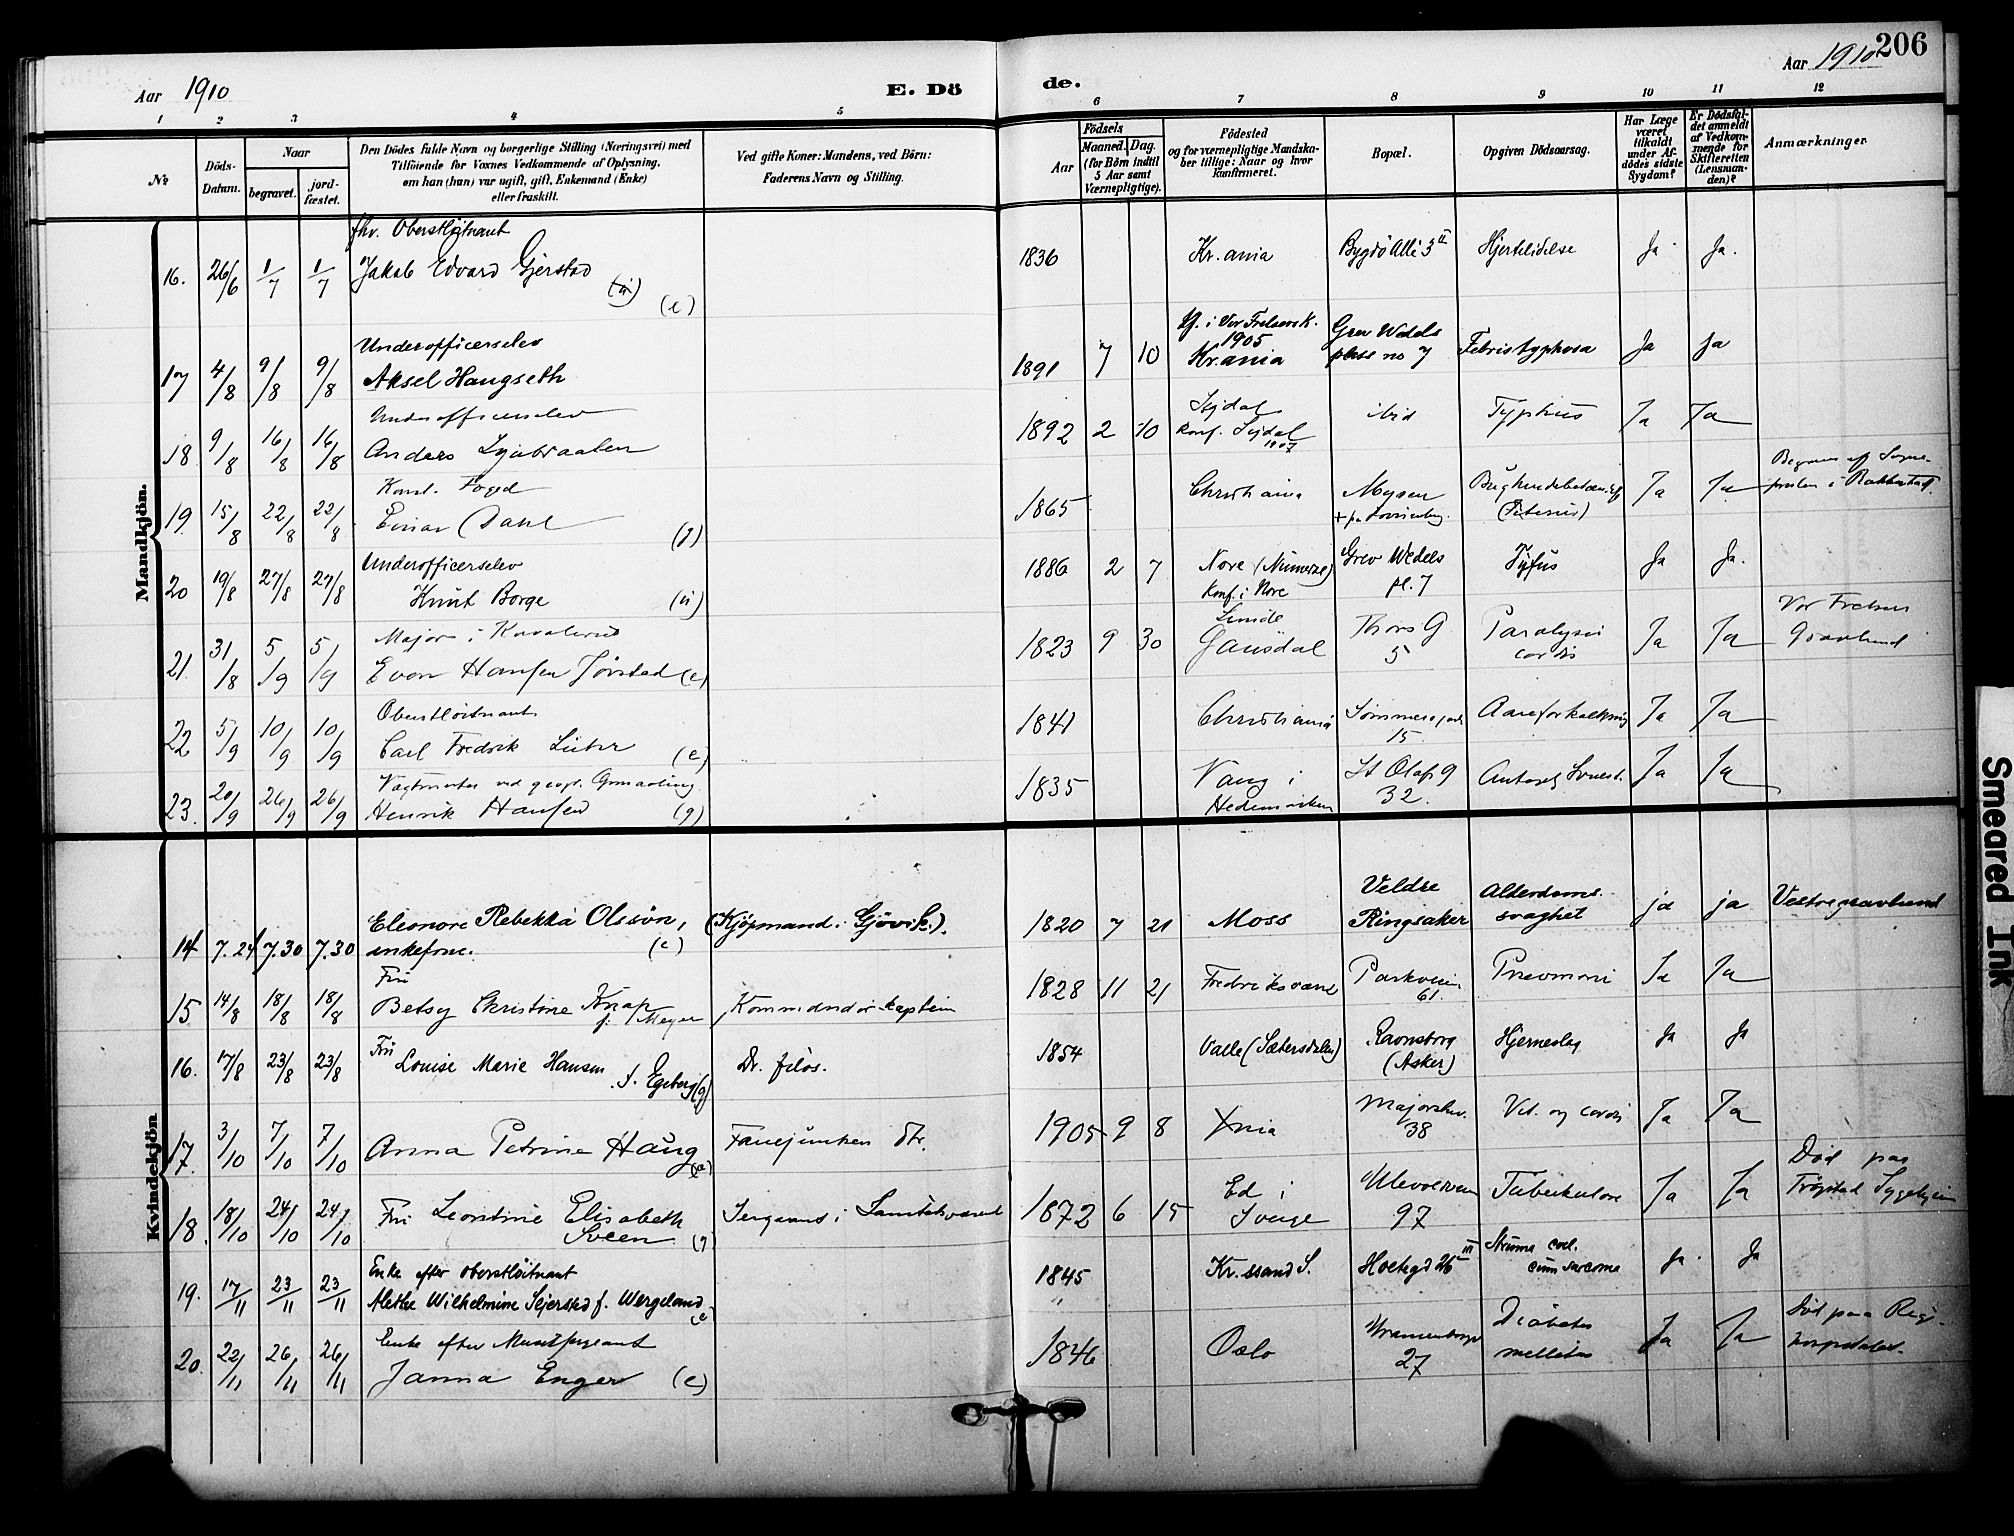 Aar 1910
E. Dö
de.
Aar 1910
206
1 2 3 4 5 6 7 8 9 10 11 12
№
Döds-
Datum.
Naar
begravet.
jord-
fæstet.
Den Dödes fulde Navn og borgerlige Stilling (Næringsvei) med
Tilföiende for Voxnes Vedkommende af Oplysning,
om han (hun) var ugift, gift, Enkemand (Enke)
eller fraskilt.
Ved gifte Koner: Mandens, ved Börn:
Faderens Navn og Stilling.
Födsels
Aar
Maaned.
Dag.
(for Börn indtil
5 Aar samt
Værnepligtige).
Födested
og for værnepligtige Mandska-
ber tillige: Naar og hvor
konfirmeret.
Bopæl.
Opgiven Dödsaarsag.
Har Læge
været
tilkaldt
under Af-
dödes sidste
Sygdom?
Er Dödsfal-
det anmeldt
af Vedkom-
mende for
Skifteretten
(Lensman-
den)?
Anmærkninger
Mandkjön.
fhv. Oberstløitnant
16. 26/6 1/7 1/7 Jakob Edvard Gjerstad (e) 1836 Kr.ania Bygdö Allé 3 II Hjertelidelse Ja Ja.
Underofficerselev
17 4/8 9/8 9/8 Aksel Haugseth 1891 7 10 i Vor Frelsers K. 1905 Kr.ania Grev Wedels plass no 7 Febris typhosa Ja Ja
Underofficerselev
18 9/8 16/8 16/8 Anders 1892 2 10 Sigdal konf. Sigdal 1907 ibid Typhus Ja Ja
Konst. Foged
19 15/8 22/8 22/8 Einar Dahl (g) 1865 Christiania Mysen Ja Ja i Rakkestad.
Underofficerselev
20 19/8 27/8 27/8 Knut Borge (u) 1886 2 7 Nore (Numedal) Konf. i Nore Grev Wedels pl. 7 Tyfus Ja Ja.
Major i Kavaleriet
21 31/8 5/9 5/9 Even Hansen Jørstad (e) 1823 9 30 Gausdal Thors G 5 Paralysis cordis Ja Ja Vor Frelsers Gravlund
Oberstløitnant
22 5/9 10/9 10/9 Carl Fredrik (e) 1841 Christiania 15 Aareforkalkning Ja Ja
Vagtmester ved geogr. Opmaaling
23. 20/9 26/9 26/9 Henrik Hansen (g) 1835 Vang i Hedemarken St Olafs g 32. Ja Ja
Kvindekjön
14 7.24 7.30 7.30 Eleonore Rebekka Olssön, enkefrue. (e) (Kjöpmand i Gjövik). 1820 7 21 Moss Veldre Ringsaker Alderdoms-svaghet ja ja Vestre gravlund
Fru
15 14/8 18/8 18/8 Betsy Christine Knap f. Meyer Kommandörkaptein 1828 11 21 Fredriksværn Parkveien 61. Pneumoni Ja Ja
Fru
16. 17/8 23/8 23/8 Louise Marie Hansen f. Egeberg (g) Dr. filos. 1854 Valle (Sætersdalen) Ravnsborg (Asker) Hjerneslag Ja Ja
17. 3/10 7/10 7/10 Anna Petrine Haug Fanejunker 1905 9 8 Xnia Majorstuv. 38 Vit. org cordis Ja Ja
18. 18/10 24/10 24/10 Fru Leontine Elisabeth Sveen (g) Sergeant i Sanitetsværnet 1872 6 15 Ed i Sverige Ullevoldsveien 97 Tuberkulose Ja Ja Død paa Trøgstad Sygehjem
Enke efter oberstløitnant
19. 17/11 23/11 23/11 Alethe Wilhelmine Sejersted f. Wergeland (e) 1845 Kr.ssand S. Holtegd 26 III Struma cum sarcoma Ja Ja
Enke efter
20. 22/11 26/11 26/11 Janna Enger (e) 1846 Oslo 27 Diabetes mellitus Ja Ja Død paa Rigshospitalet.
Smeared Ink